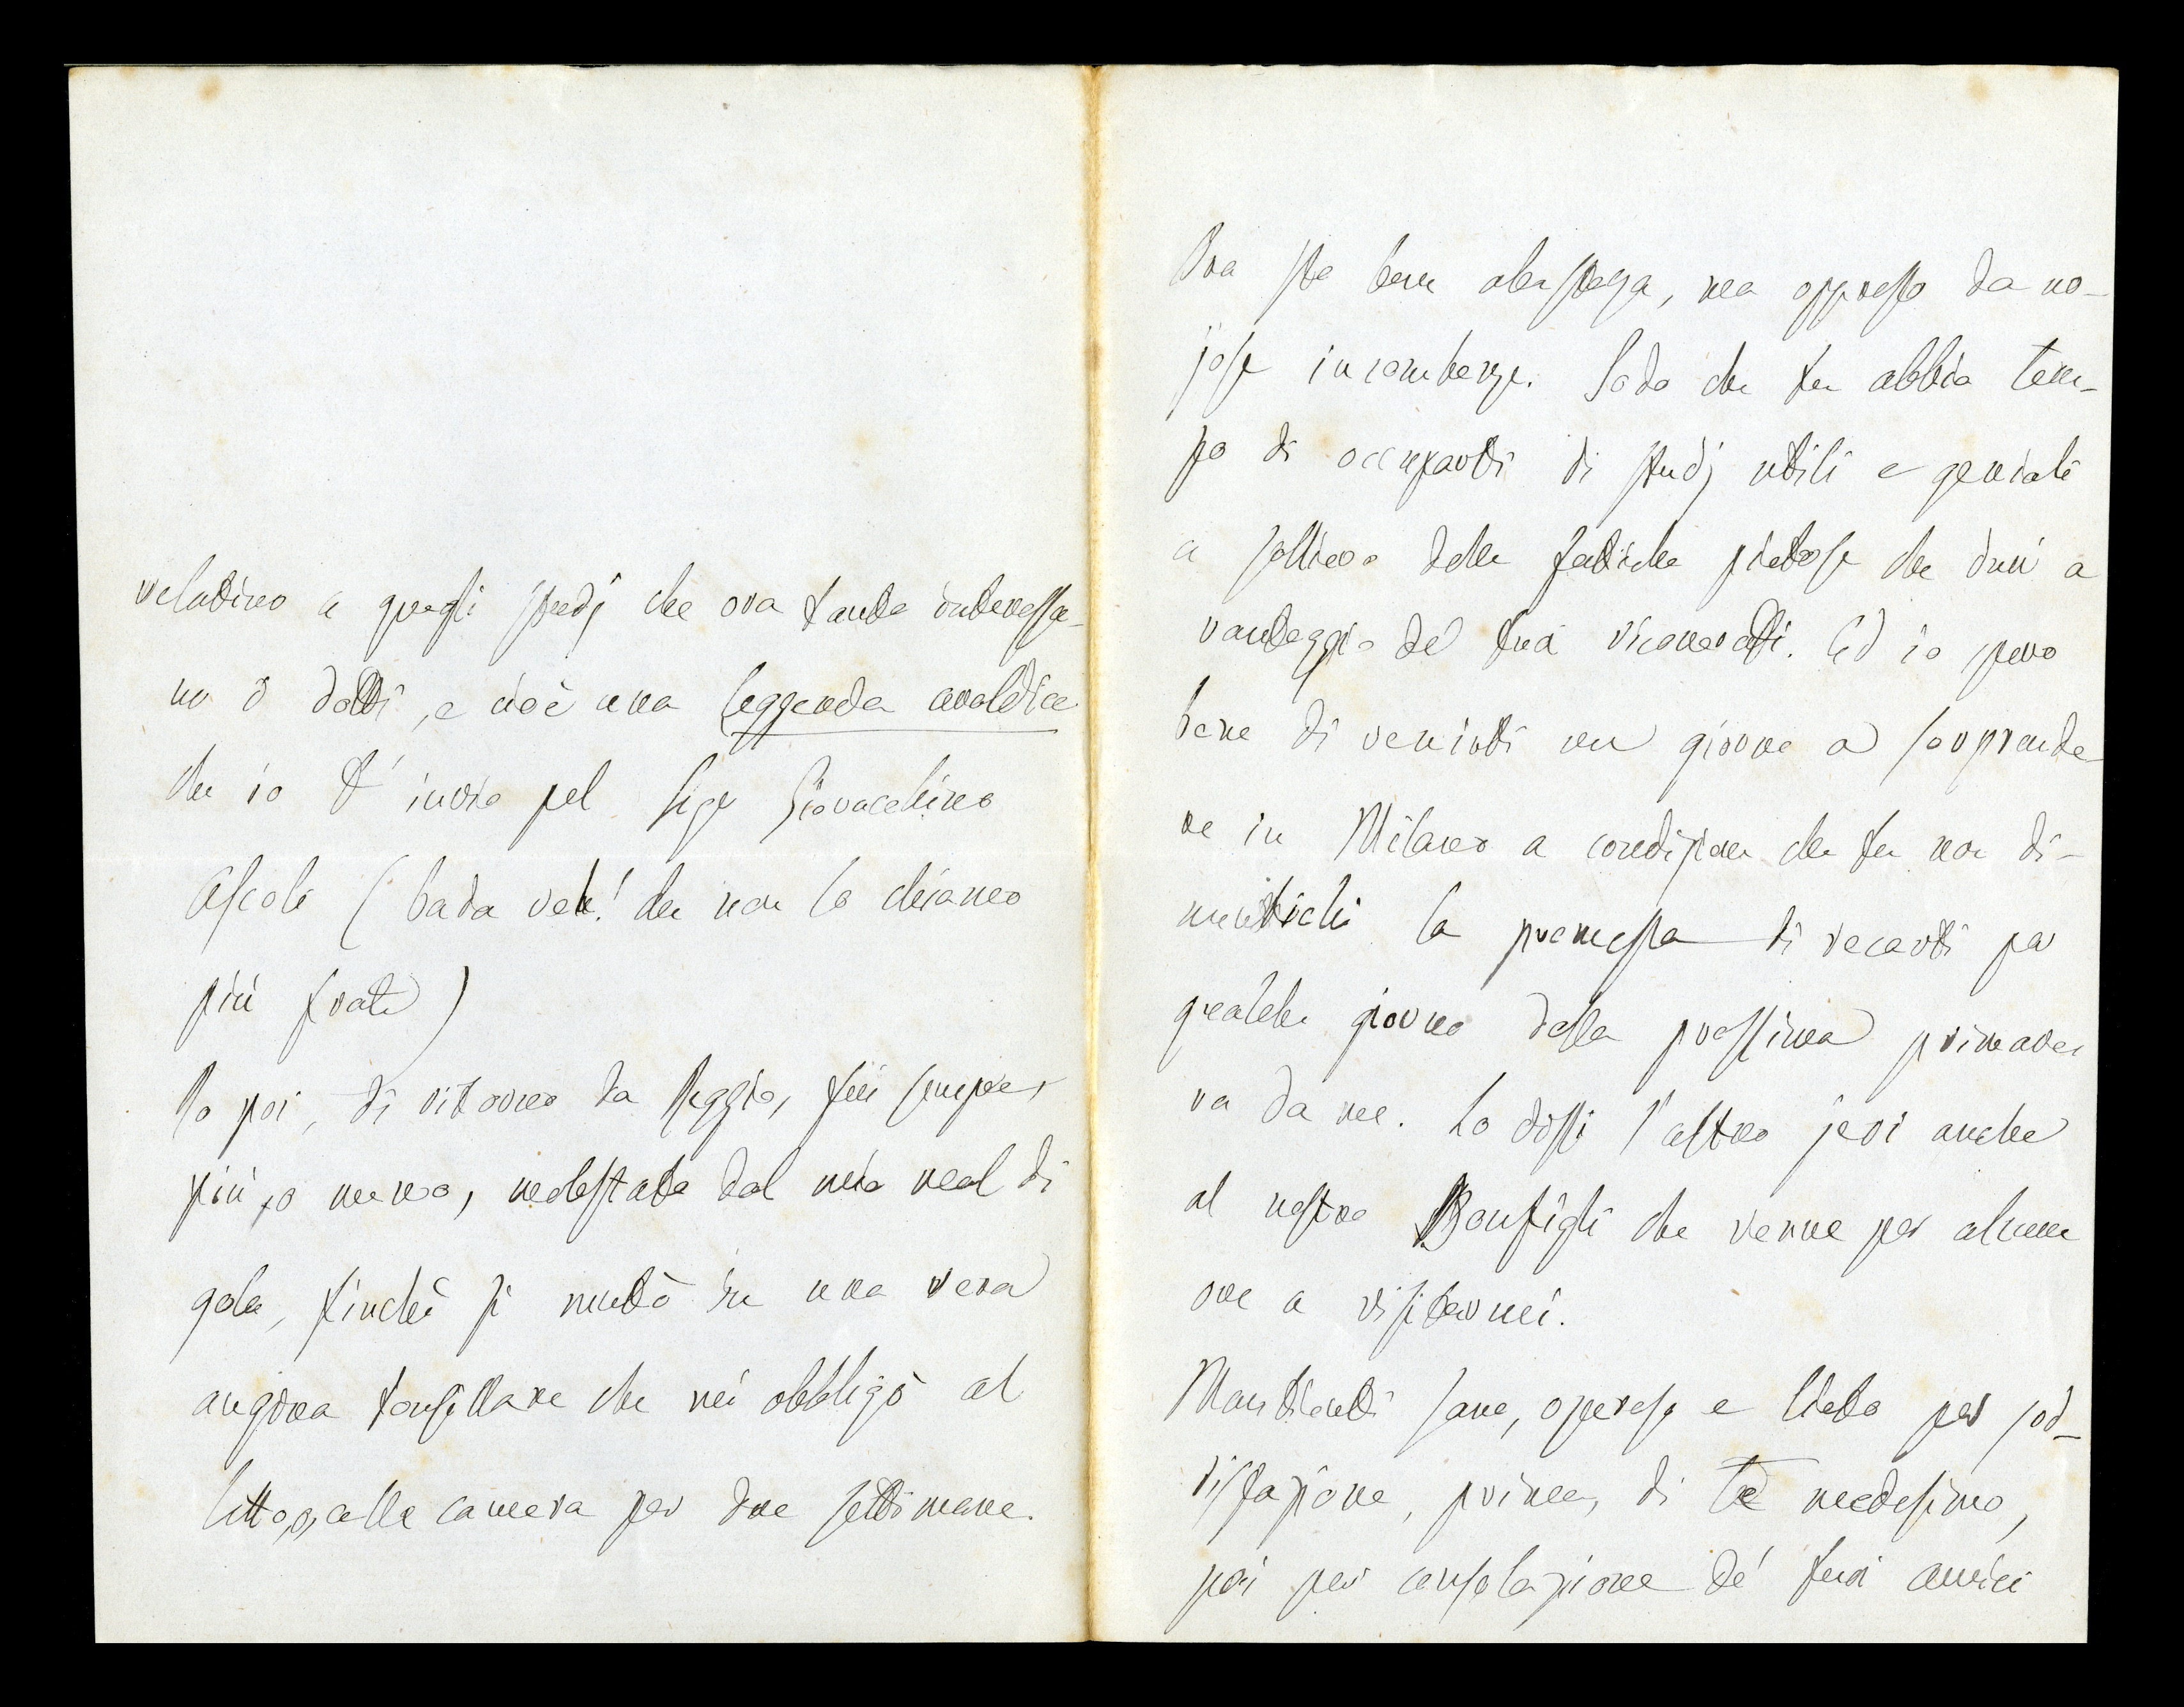 relativo a quegli studj che ora tanto interessa-
no i dotti, e cioè una leggenda araldica
che io t' invio pel Sigr Giovacchino
Ascoli (bada veh! che non lo chiamo
più frate)
Io poi, di ritorno da Reggio, fui sempre,
più, o meno, molestato dal mio mal di
gola, finchè si mutò in una vera
angina tonsillare che mi obbligò al
letto, o, alla camera per due settimane.
Ora sto bene abastanza, ma oppresso da no-
jose incombenze. Godo che tu abbia tem-
po di occuparti di studj utili e geniali
a sollievo delle fatiche pietose che duri a
vantaggio de' tuoi ricoverati. Ed io spero
bene di venirti un giorno a sorprende-
re in Milano a condizione che tu non di-
mentichi la promessa di recarti per
qualche giorno della prossima primave
ra da me. Lo dissi l'altro jeri anche
al nostro Bonfigli che venne per alcune
ore a visitarmi.
Mantienti sano, operoso e lieto per sod-
disfazione, prima, di te medesimo,
poi per consolazione de' tuoi amici